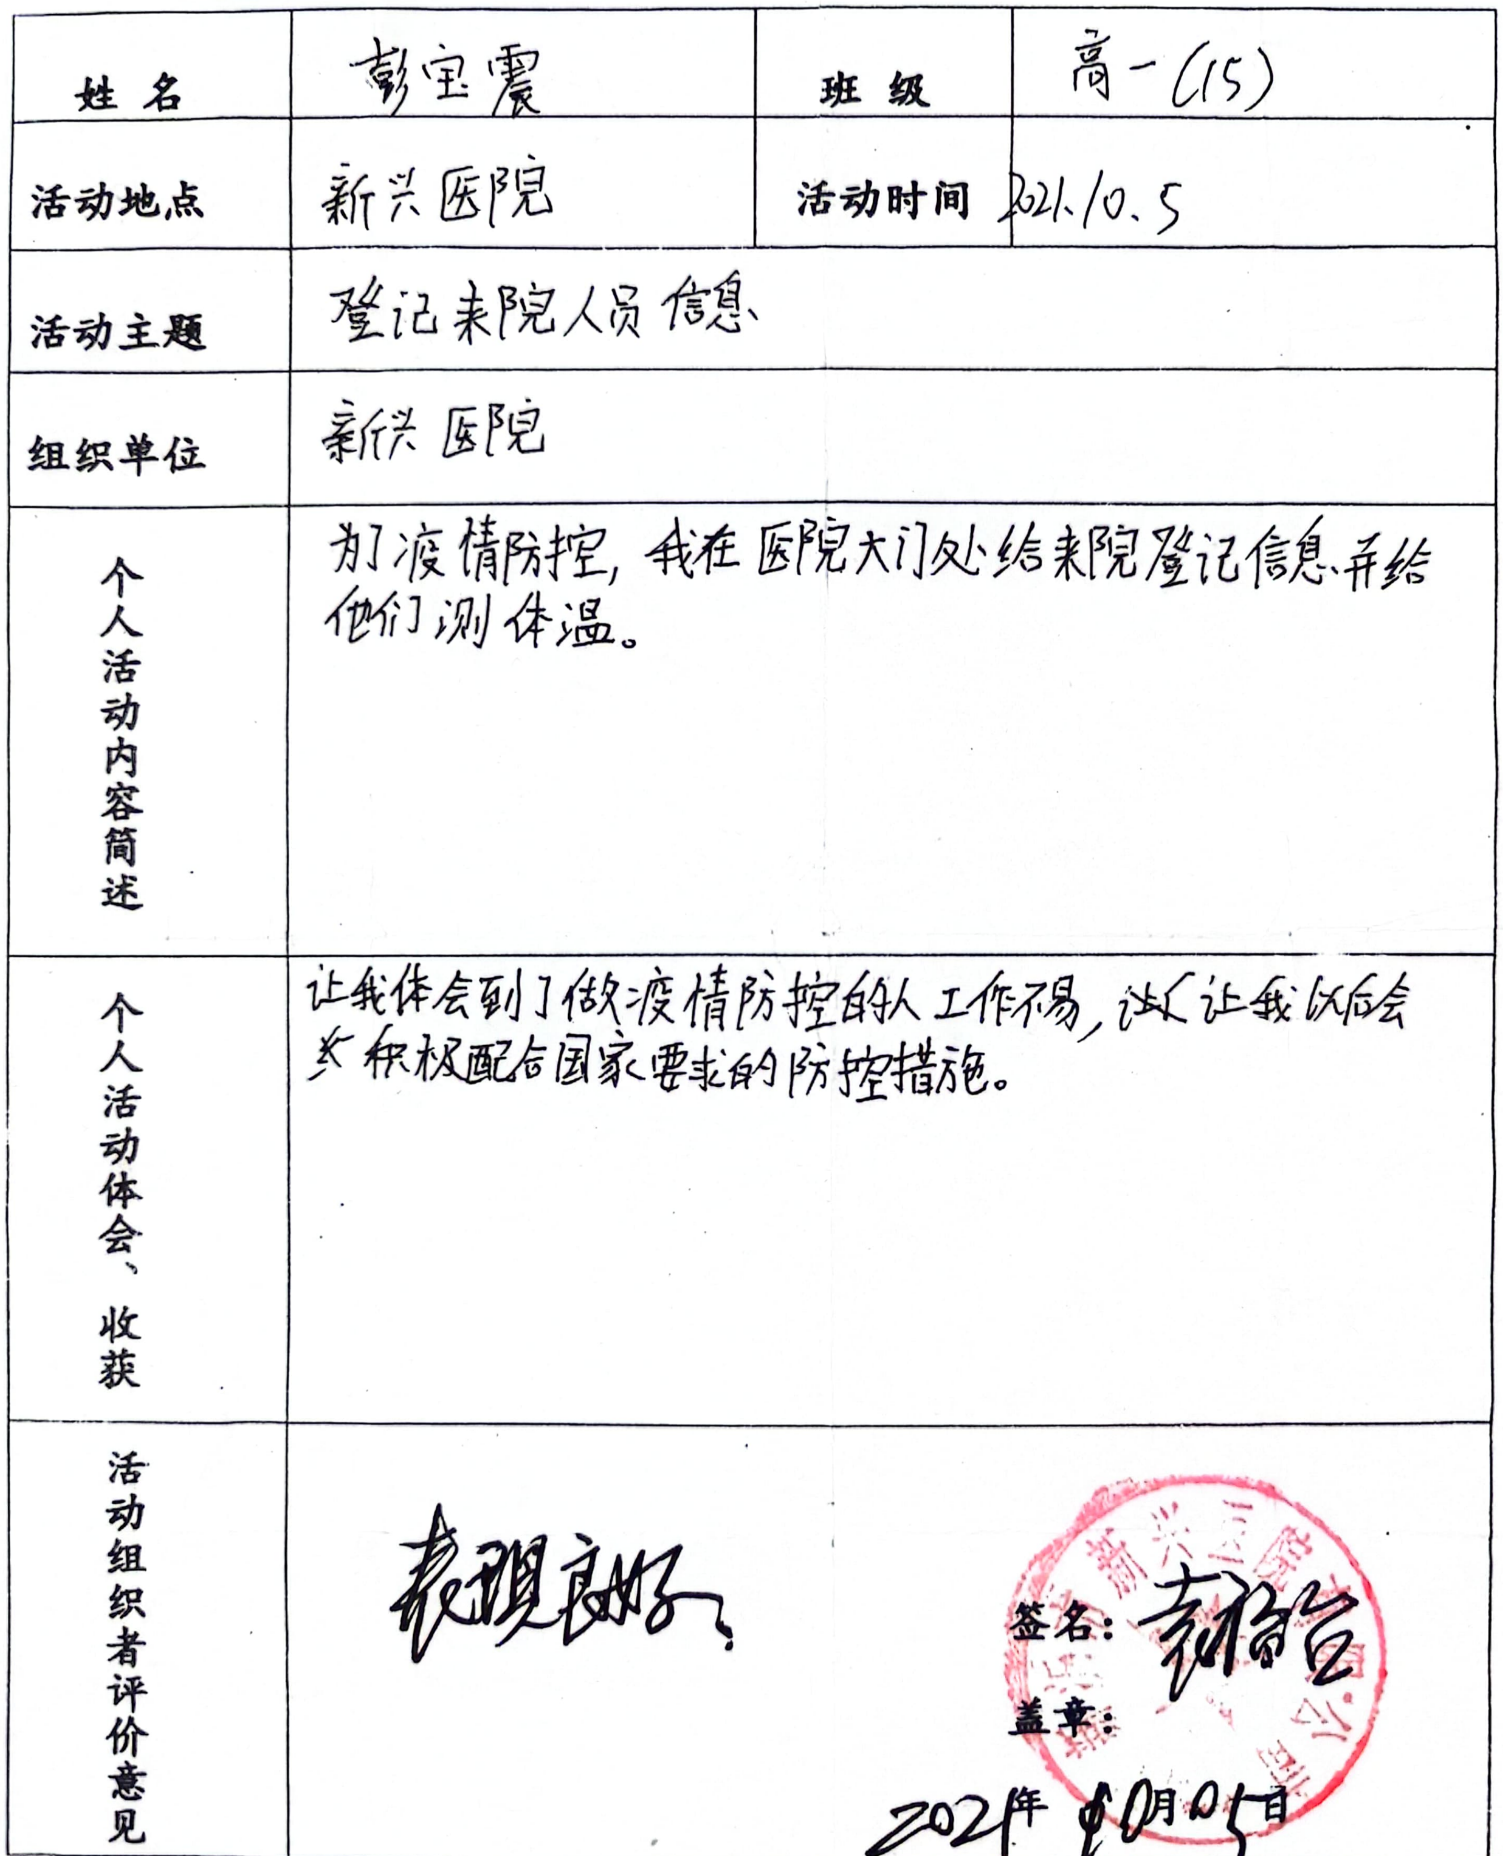 姓名 彭宝震 班级 高一(15)
活动地点 新兴医院 活动时间 2021.10.5
活动主题 登记来院人员信息
组织单位 新兴医院
个人活动内容简述
为了疫情防控, 我在医院大门处给来院登记信息并给
他们测体温。
个人活动体会、收获
让我体会到了做疫情防控的人工作不易, 让我以后会
积极配合国家要求的防控措施。
活动组织者评价意见
表现良好
新兴医院有限公司
签名:
盖章:
2021年10月05日